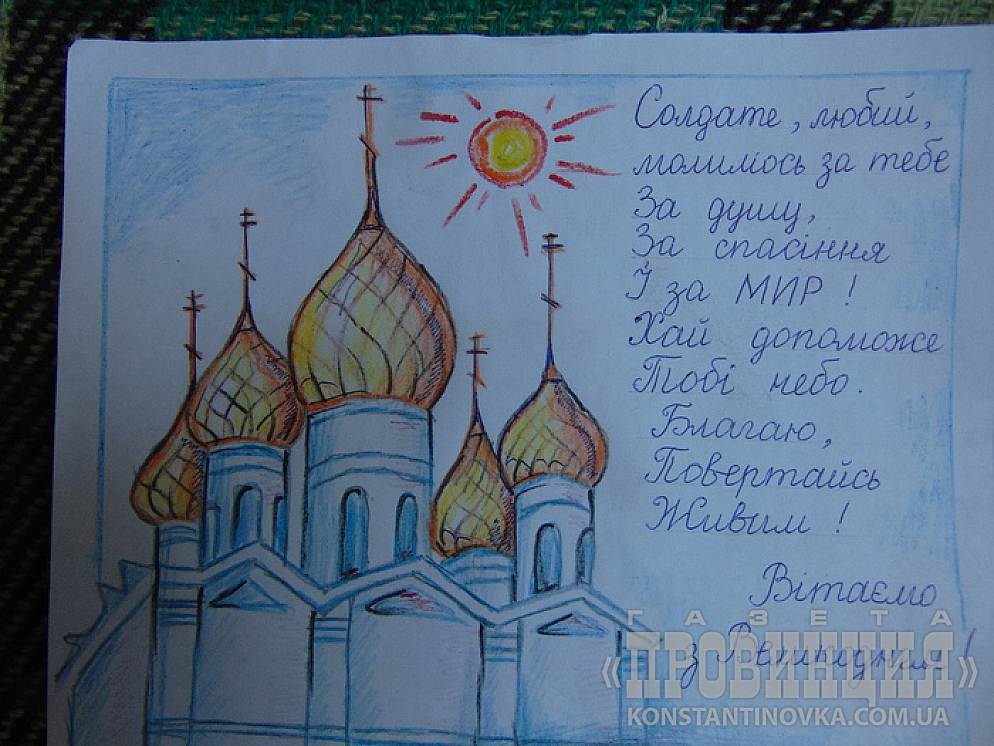 Солдате, любий,
молимось за тебе
За душу,
За спасіння
І за МИР!
Хай допоможе
Тобі небо.
Благаю,
Повертайсь
Живым!
Вітаємо
з Великоднем!
ГАЗЕТА
«ПРОВИНЦИЯ»
KONSTANTINOVKA.COM.UA